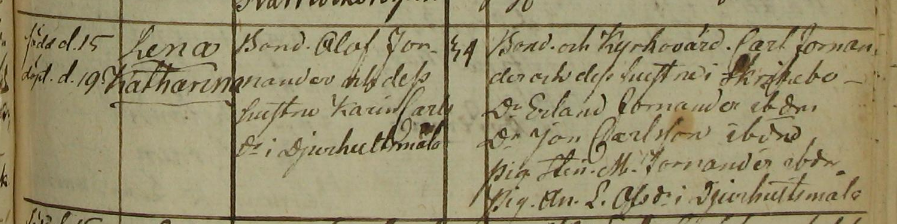 föd. d. 15
döpt. d. 19
Lena
Katharina
Bond. Olof Jor-
nander och dess
hustru Karin Carls
Dr i Djurhultsmåla
34
Bond. och Kyrkovärd. Carl Jornan
der och dess hustru i
Dr Erland Jornander ibdm
Dr Jon Carlsson ibdm
pig. M. Jornander ibdm
pig. An. L. Ols Dr i Djurhultsmåla